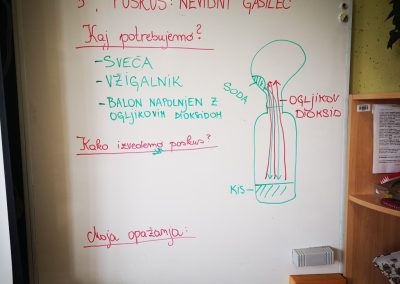 POSKUS: NEVIDNI GASILEC
Kaj potrebujemo?
- SVEČA
- VŽIGALNIK
- BALON NAPOLNJEN Z
OGLJIKOVIM DIOKSIDOM
SODA
OGLJIKOV
DIOKSID
Kako izvedemo poskus?
KIS
Moja opažanja: